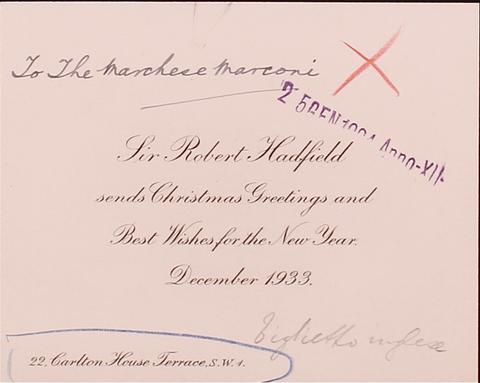 To The Marchese Marconi
25 GEN 1934 Anno-XII-
Sir Robert Hadfield
sends Christmas Greetings and
Best Wishes for the New Year.
December 1933.
Biglietto inglese
22, Carlton House Terrace, S.W.1.